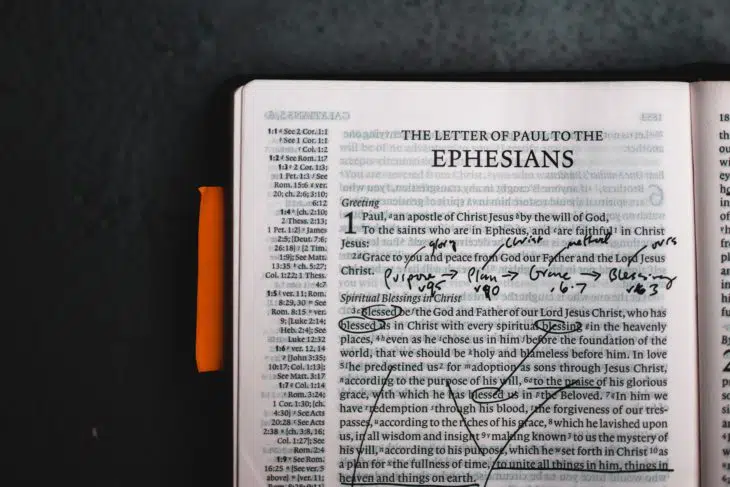 1:1 ª See 2 Cor. 1:1
ᵇ See 1 Cor. 1:1
ᶜ Col. 1:2
1:2 ᵈ See Rom. 1:7
1:3 ᵉ 2 Cor. 1:3;
1 Pet. 1:3 ᶠ See
Rom. 15:6 ᵍ ver.
20; ch. 2:6; 3:10;
6:12
1:4 ʰ [ch. 2:10;
2 Thess. 2:13;
1 Pet. 1:2] ⁱ James
2:5; [Deut. 7:6;
26:18] ʲ [2 Tim.
1:9]; See Matt.
13:35 ᵏ ch. 5:27;
Col. 1:22; 1 Thess.
4:7
1:5 ˡ ver. 11; Rom.
8:29, 30 ᵐ See
Rom. 8:15 ⁿ ver.
9; [Luke 2:14;
Heb. 2:4]; See
Luke 12:32
1:6 ᵒ ver. 12, 14
ᵖ [John 3:35;
10:17; Col. 1:13];
See Matt. 3:17
1:7 ᑫ Col. 1:14
ʳ Rom. 3:24;
1 Cor. 1:30; [ch.
4:30] ˢ See Acts
20:28 ᵗ See Acts
2:38 ᵘ [ch. 3:8, 16;
Col. 1:27]; See
Rom. 2:4
1:9 ᵛ See Rom.
16:25 ʷ [See ver. 5
above] ˣ [ver. 11;
THE LETTER OF PAUL TO THE
EPHESIANS
Greeting
1 Paul, ªan apostle of Christ Jesus ᵇby the will of God,
To the saints who are in Ephesus, and ᶜare faithful in Christ
Jesus:
glory Christ method ours
2 ᵈGrace to you and peace from God our Father and the Lord Jesus
Christ.
Purpose → Plan → Grace → Blessing
Spiritual Blessings in Christ
3 ᵉBlessed be ᶠthe God and Father of our Lord Jesus Christ, who has
blessed us in Christ with every spiritual blessing ᵍin the heavenly
places, 4 ʰeven as he ⁱchose us in him ʲbefore the foundation of the
world, that we should be ᵏholy and blameless before him. In love
5 ˡhe predestined us for ᵐadoption as sons through Jesus Christ,
ⁿaccording to the purpose of his will, 6 ᵒto the praise of his glorious
grace, with which he has blessed us in ᵖthe Beloved. 7 ᑫIn him we
have ʳredemption ˢthrough his blood, ᵗthe forgiveness of our tres-
passes, ᵘaccording to the riches of his grace, 8 which he lavished upon
us, in all wisdom and insight 9 ᵛmaking known to us the mystery of
his will, ʷaccording to his purpose, which he ˣset forth in Christ 10 as
a plan for ʸthe fullness of time, ᶻto unite all things in him, things in
heaven and things on earth.